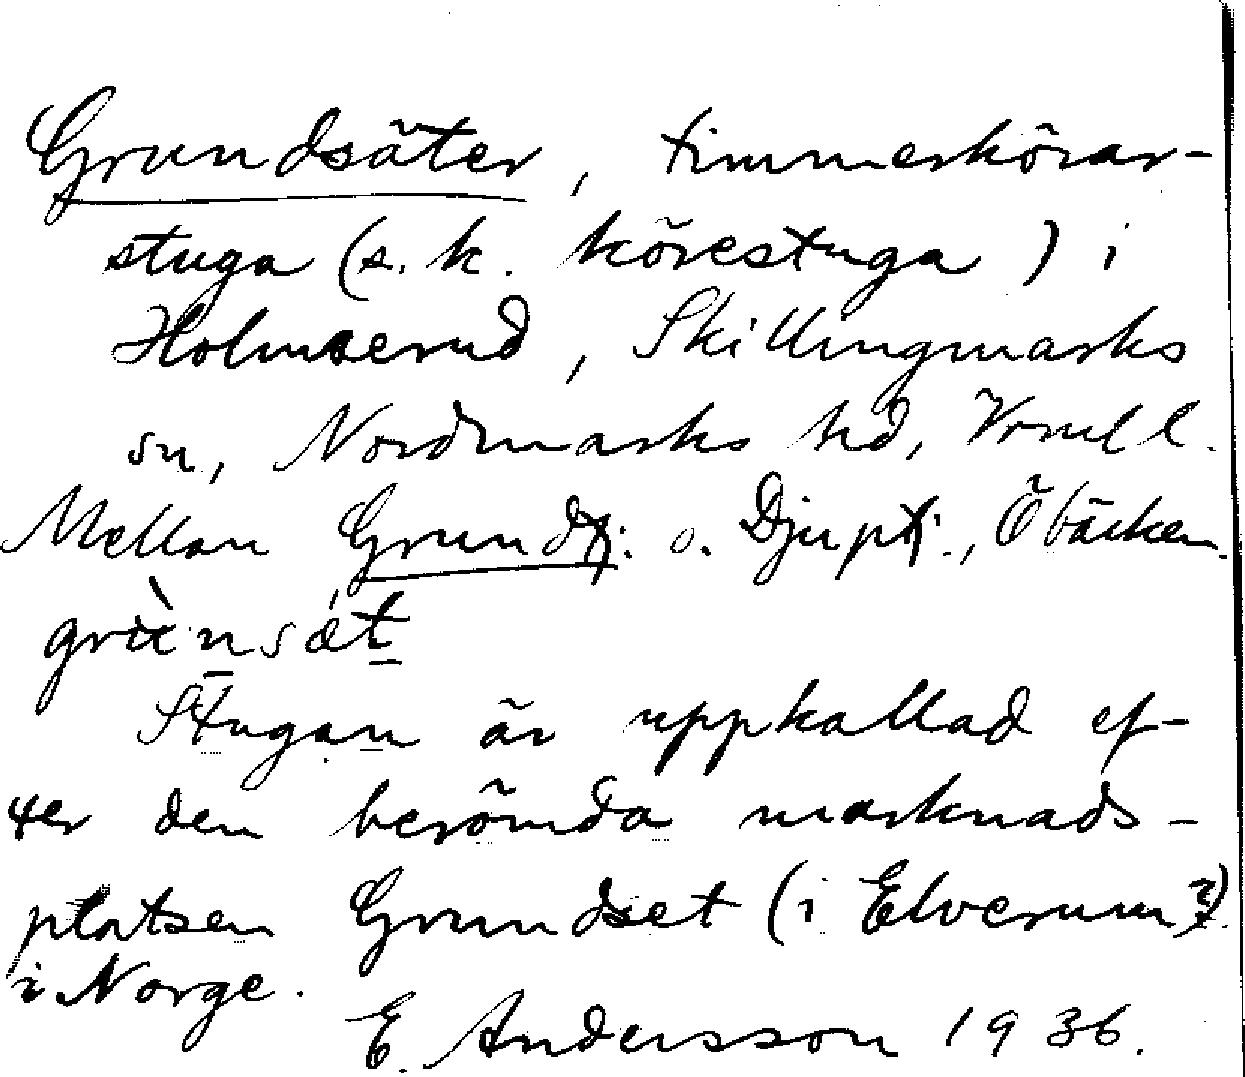 Grundsäter, timmerkörar-
stuga (s. k. körestuga) i
Holmserud, Skillingmarks
sn, Nordmarks hd, Vrml l.
Mellan Grundtj: o. Djuptj:, Öbäcken.
grùnsǽt
Stugan är uppkallad ef-
ter den berömda marknads-
platsen Grundset (i Elverum?)
i Norge.
E. Andersson 1936.